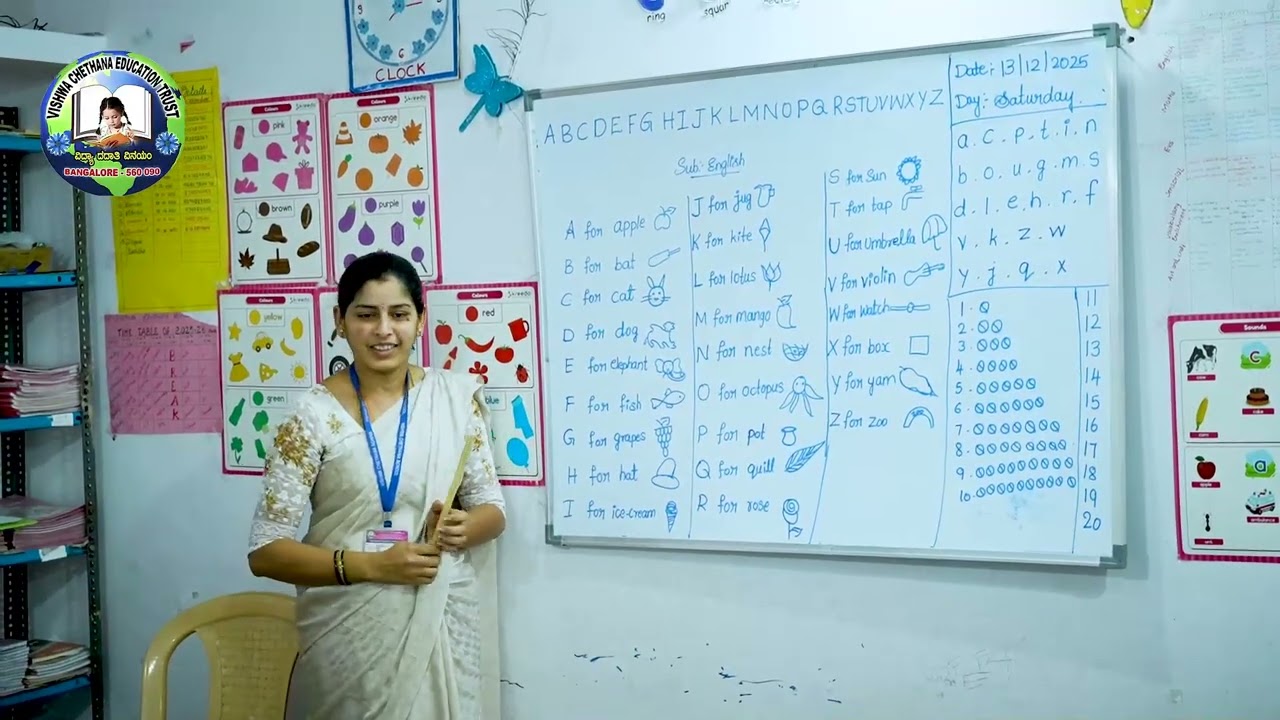 VISHWA CHETHANA EDUCATION TRUST
ವಿದ್ಯಾ ದದಾತಿ ವಿನಯಂ
BANGALORE - 560 090
CLOCK
ring
squar
Colours
pink
brown
Colours
orange
purple
Colours
yellow
green
Colours
red
blue
TIME TABLE OF 2025-26
B
R
E
A
K
A B C D E F G H I J K L M N O P Q R S T U V W X Y Z
Sub:- English
A for apple
B for bat
C for cat
D for dog
E for elephant
F for fish
G for grapes
H for hat
I for ice-cream
J for jug
K for kite
L for lotus
M for mango
N for nest
O for octopus
P for pot
Q for quill
R for rose
S for sun
T for tap
U for umbrella
V for violin
W for watch
X for box
Y for yam
Z for zoo
Date:- 13/12/2025
Day:- Saturday.
a . c . p . t . i . n
b . o . u . g . m . s
d . l . e . h . r . f
v . k . z . w
y . j . q . x
1.
2.
3.
4.
5.
6.
7.
8.
9.
10.
11
12
13
14
15
16
17
18
19
20
Sounds
c
cow
cake
corn
a
apple
ambulance
ant